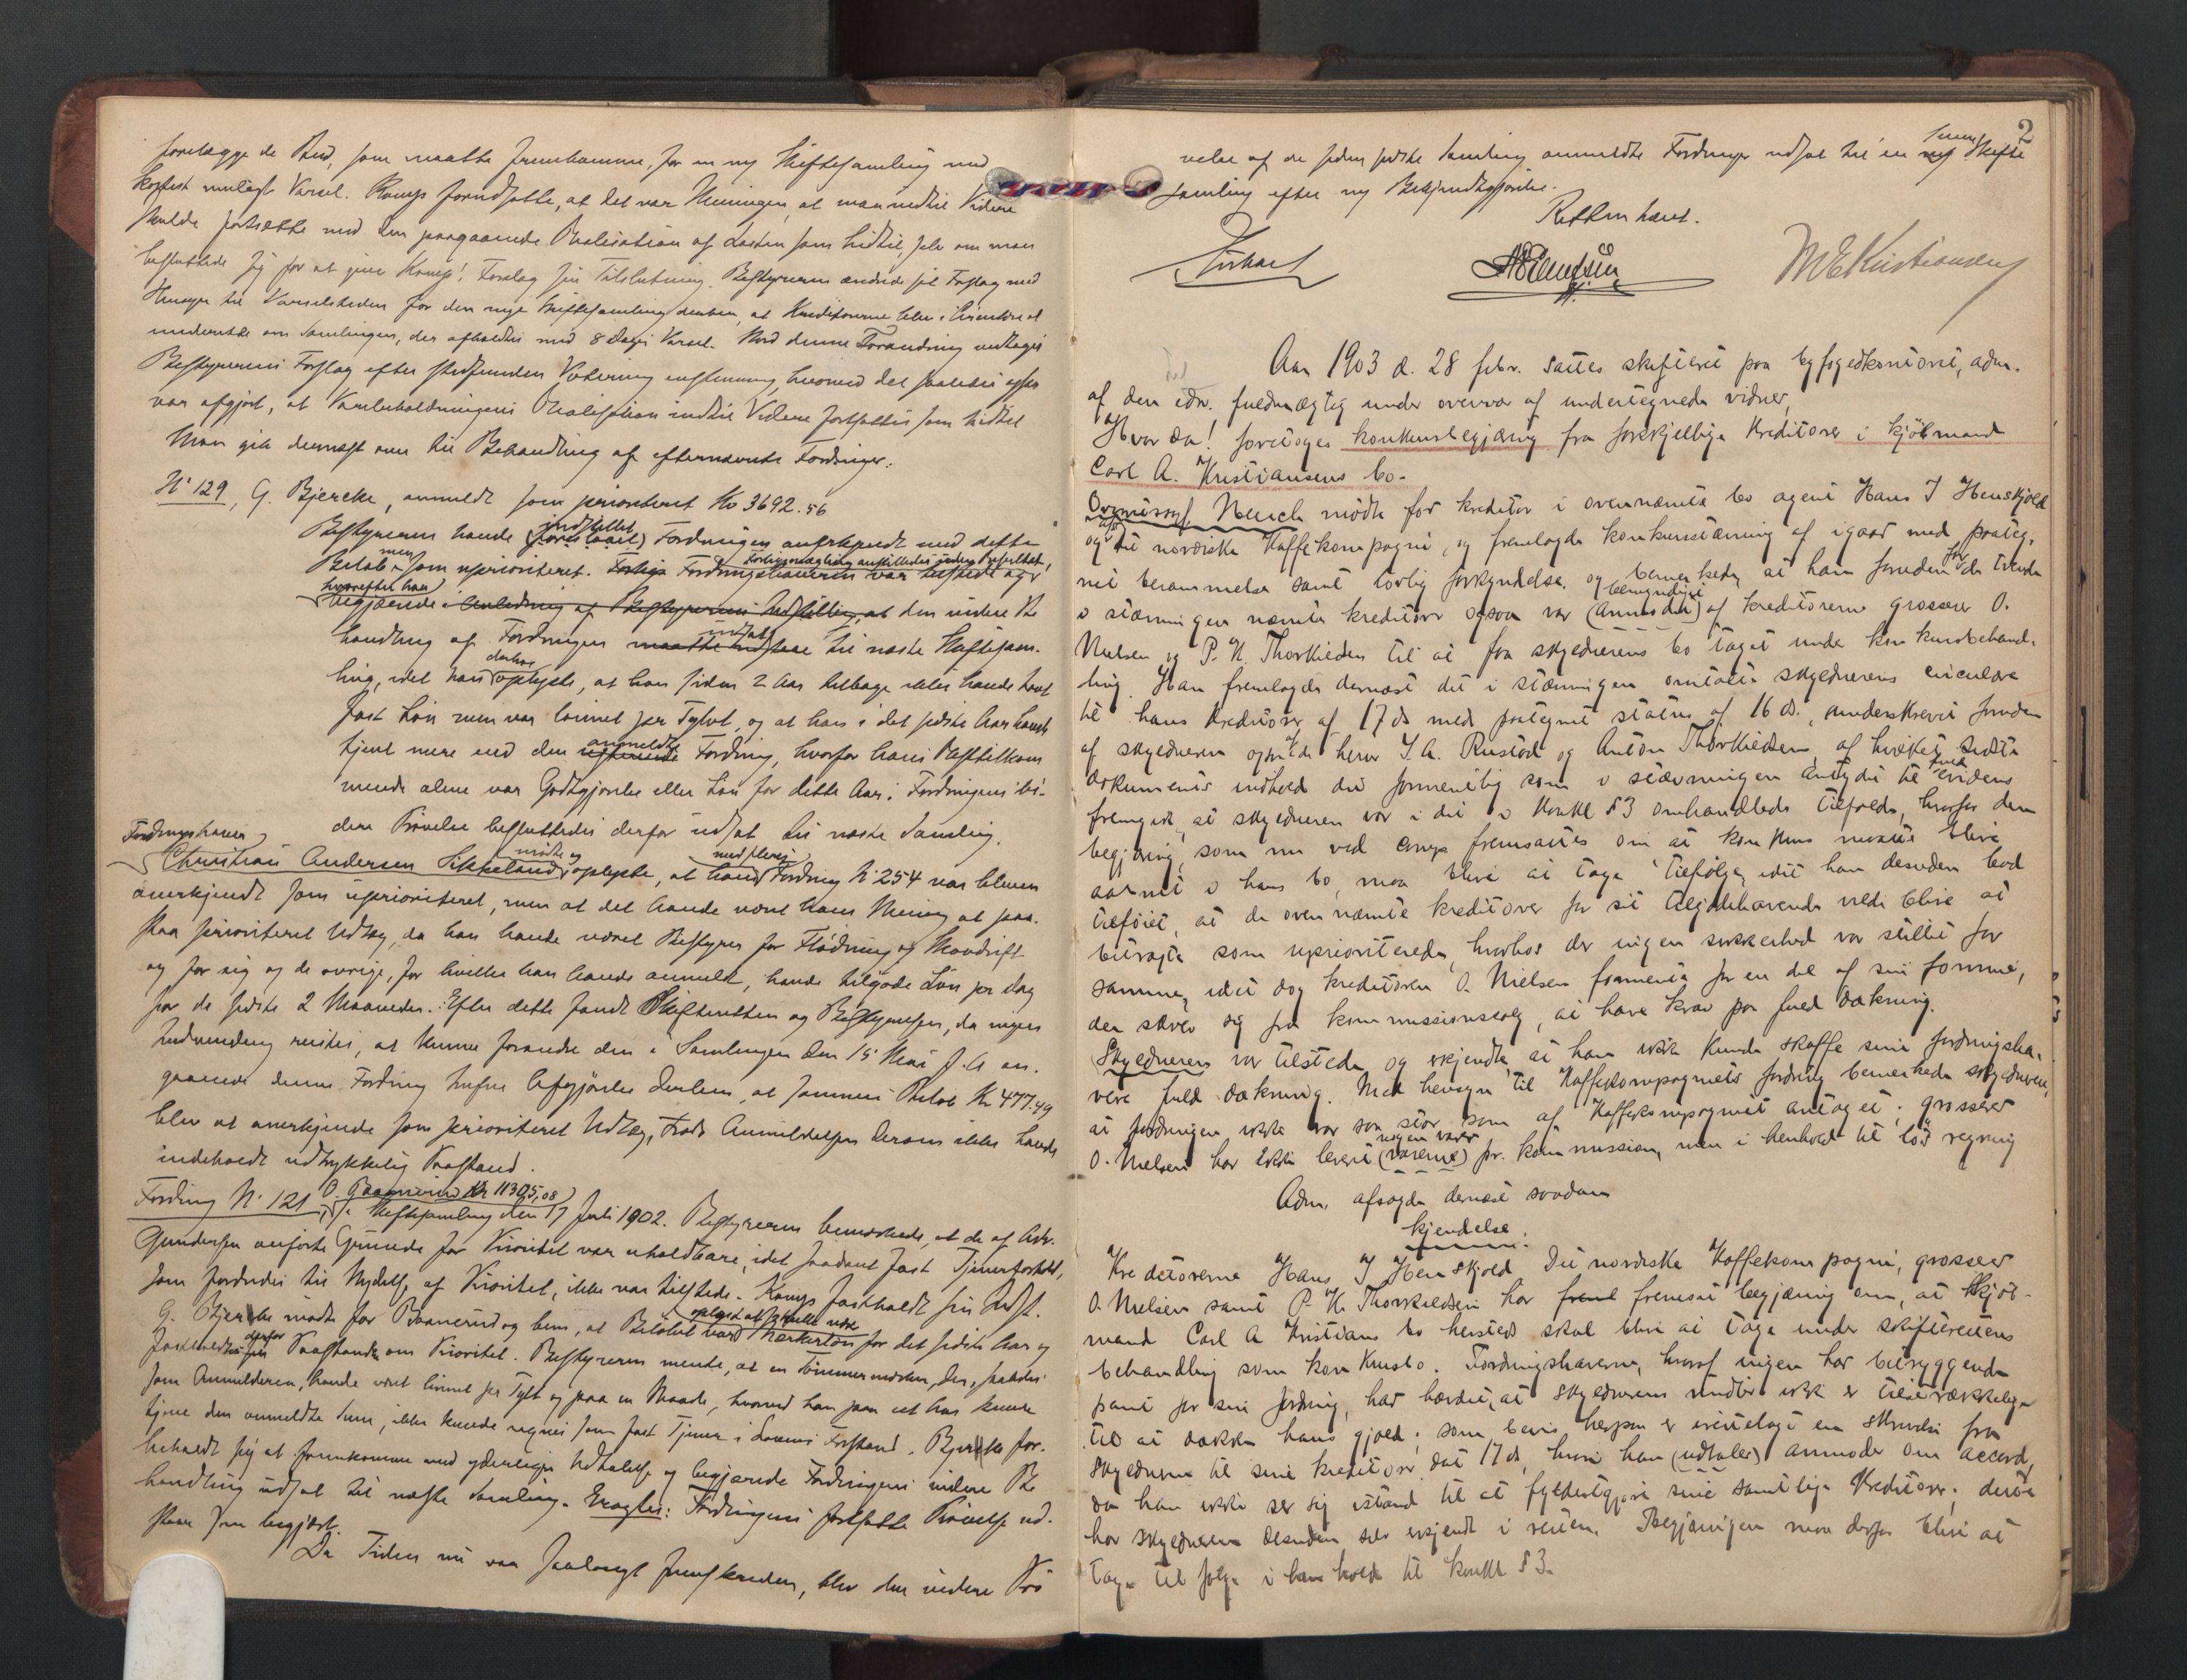 forelægge de Bud, som maatte fremkomme, for en ny Skiftesamling med
kortest muligt Varsel. Kamp forudsatte, at det var Meningen, at man indtil Videre
skulde fortsætte med den paagaaende Realisation af Lasten som hidtil, selv om man
besluttede sig for at give Kamps Forslag sin Tilslutning. Bestyreren ændrede sit Forslag med
Hensyn til Varselstiden for den nye Skiftesamling derhen, at Kreditorerne blev i Circulære at
underrette om Samlingen, der afholdes med 8 Dages Varsel. Med denne Forandring vedtoges
Bestyrerens Forslag efter stedfunden Votering enstemmig, hvormed det saaledes ogsaa
var afgjort, at Varebeholdningens Realisation indtil Videre fortsattes som hidtil
Man gik dernæst over til Behandling af efternævnte Fordringer:
No 129, G. Bjercke, anmeldt som prioriteret Kr 3692.56
Bestyreren havde (foreslaaet) indstillet Fordringen anerkjendt med dette
Beløb men som uprioriteret. Fordringshaveren var tilstede og
hvorefter han begjærede i Anledning af Bestyrerens Indstilling, at den videre Be
handling af Fordringen maatte udsat til næste Skiftesam-
ling, idet han derhos oplyste, at han siden 2 Aar tilbage ikke havde havt
fast Løn men var lønnet per Tylvt, og at han i det sidste Aar havde
tjent mere end den anmeldte Fordring, hvorfor hans Resttilkom
mende alene var Godtgjørelse eller Løn for dette Aar. Fordringens vi-
dere Prøvelse besluttedes derfor udsat til næste Samling.
Fordringshaver
Christian Andersen Sikkeland mødte og oplyste, at hans Fordring No 254 var bleven
anerkjendt som uprioriteret, men at det havde været hans Mening at paa-
staa prioriteret Udlæg, da han havde været Bestyrer for Flødning og Skovdrift
og for sig og de øvrige, for hvilke han havde anmeldt, havde tilgode Løn per Dag
for de sidste 2 Maaneder. Efter dette fandt Skifteretten og Bestyrelsen, da ingen
Indvending reistes, at kunne forandre den i Samlingen den 15 Mai f. A. an-
gaaende denne Fordring trufne Afgjørelse derhen, at sammes Beløb Kr 477.49
blev at anerkjende som prioriteret Udlæg, trods Anmeldelsen derom ikke havde
indeholdt udtrykkelig Paastand.
Fordring No 121, O. Baanerud Kr 11305,08
i Skiftesamling den 17 Juli 1902. Bestyreren bemærkede, at de af Adv.
Gundersen anførte Grunde for Prioritet var uholdbare, idet saadant fast Tjenerforhold,
som fordredes til Nydelse af Prioritet, ikke var tilstede. Kamp fastholdt sin Indst.
G. Bjercke mødte for Baanerud og bem, at Beløbet oplyst at skulle være for det sidste Aar og
fastholdtes derfor Paastanden om Prioritet. Bestyreren mente, at en Tømmermærker, der, saaledes
som Anmelderen, havde været lønnet per Tylt og paa en Maade, hvorved han paa et Aar kunde
tjene den anmeldte Sum, ikke kunde regnes som fast Tjener i Lovens Forstand. Bjercke for-
beholdt sig at fremkomme med yderligere Udtalelse og begjærede Fordringens videre Be
handling udsat til næste Samling. Eragtes: Fordringens fortsatte Prøvelse ud-
staar som begjært.
Da Tiden nu var saalangt fremskreden, blev den videre Prø
2
velse af de siden sidste Samling anmeldte Fordringer udsat til en ny senere Skifte
samling efter ny Bekjendtgjørelse.
Retten hævet.
M E Kristiansen
Aar 1903 d. 28 febr. sattes skifteret paa byfogedkontoret, adm.
af den edsv. fuldmægtig under overvær af undertegnede vidner,
Hvor da! foretoges konkursbegjæring fra forskjellige kreditorer i kjøbmand
Carl A. Kristiansens bo.
Overretssagf. Heuch mødte for kreditor i ovennævnte bo agent Hans J Henskjold
og det nordiske Kaffekompagni, og fremlagde konkursstævning af igaar med paateg-
net berammelse samt lovlig forkyndelse, og bemerkede, at han foruden for de tvende
i stævningen nævnte kreditorer ogsaa var (anmodet) bemyndiget af kreditorerne grosserer O.
Nielsen og P. K. Thorkildsen til at faa skyldnerens bo taget under konkursbehand-
ling. Han fremlagde dernæst det i stævningen omtalte skyldnerens circulære
til hans kreditorer af 17 ds med paategnet status af 16 ds., underskrevet foruden
af skyldneren ogsaa af de herrer J. A. Rustad og Anton Thorkildsen, af hvilket sidste
dokuments indhold det formentlig som i stævningen antydet til fuld evidens
fremgik, at skyldneren var i det i Konkl § 3 omhandlede tilfælde, hvorfor den
begjæring, som nu ved comp. fremsattes om at konkurs maatte blive
aabnet i hans bo, maa blive at tage tilfølge, idet han desuden bad
tilføiet, at de ovennævnte kreditorer for sit tilgodehavende vilde blive at
betragte som uprioriterede, hvorhos der ingen sikkerhed var stillet for
samme, idet dog kreditoren O. Nielsen formente for en del af sin fomme,
der skrev sig fra kommissionssalg, at have krav paa fuld dækning.
Skyldneren var tilstede og erkjendte, at han ikke kunde skaffe sine fordringsha-
vere fuld dækning. Med hensyn til Kaffekompagniets fordring bemerkede skyldneren,
at fordringen ikke var saa stor som af Kaffekompagniet antaget; grosserer
O. Nielsen har ikke leveret (varerne) nogen varer pr. kommission, men i henhold til lød regning
Adm. afsagde dernæst saadan
kjendelse:
Kreditorerne Hans J Henskjold, Det nordiske Kaffekompagni, grosserer
O. Nielsen samt P. K. Thorkildsen har fremsat begjæring om, at kjøb-
mand Carl A Kristians bo hersteds skal blive at tage under skifterettens
behandling som konkursbo. Fordringshaverne, hvoraf ingen har betryggende
pant for sin fordring, har hævdet, at skyldnerens midler ikke er tilstrækkelige
til at dække hans gjæld; som bevis herpaa er fremlagt en skrivelse fra
skyldneren til sine kreditorer dat 17 ds, hvori han (udtaler) anmoder om accord,
da han ikke ser sig istand til at fyldestgjøre sine samtlige kreditorer; dette
har skyldneren desuden selv erkjendt i retten. Begjæringen maa derfor blive at
tage til følge i henhold til konkl § 3.